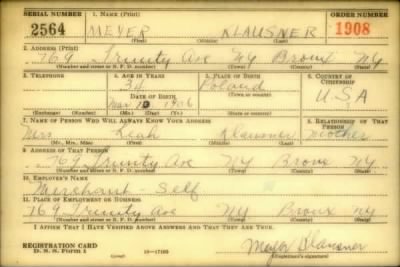 SERIAL NUMBER 1. NAME (Print) ORDER NUMBER
2564 MEYER KLAUSNER 1908
(First) (Middle) (Last)
2. ADDRESS (Print)
769 Trinity Ave NY Bronx NY
(Number and street or R. F. D. number) (Town) (County) (State)
3. TELEPHONE 4. AGE IN YEARS 5. PLACE OF BIRTH 6. COUNTRY OF CITIZENSHIP
34 Poland
DATE OF BIRTH (Town or county) USA
Mar 10 1906
(Exchange) (No.) (Mo.) (Day) (Yr.) (State or country)
7. NAME OF PERSON WHO WILL ALWAYS KNOW YOUR ADDRESS 8. RELATIONSHIP OF THAT PERSON
Mrs Leah Klausner Mother
(Mr., Mrs., Miss) (First) (Middle) (Last)
9. ADDRESS OF THAT PERSON
769 Trinity Ave NY Bronx NY
(Number and street or R. F. D. number) (Town) (County) (State)
10. EMPLOYER'S NAME
Merchant - Self
11. PLACE OF EMPLOYMENT OR BUSINESS
769 Trinity Ave NY Bronx NY
(Number and street or R. F. D. number) (Town) (County) (State)
I AFFIRM THAT I HAVE VERIFIED ABOVE ANSWERS AND THAT THEY ARE TRUE.
REGISTRATION CARD
D. S. S. Form 1 16—17105 Meyer Klausner
(Registrant's signature)